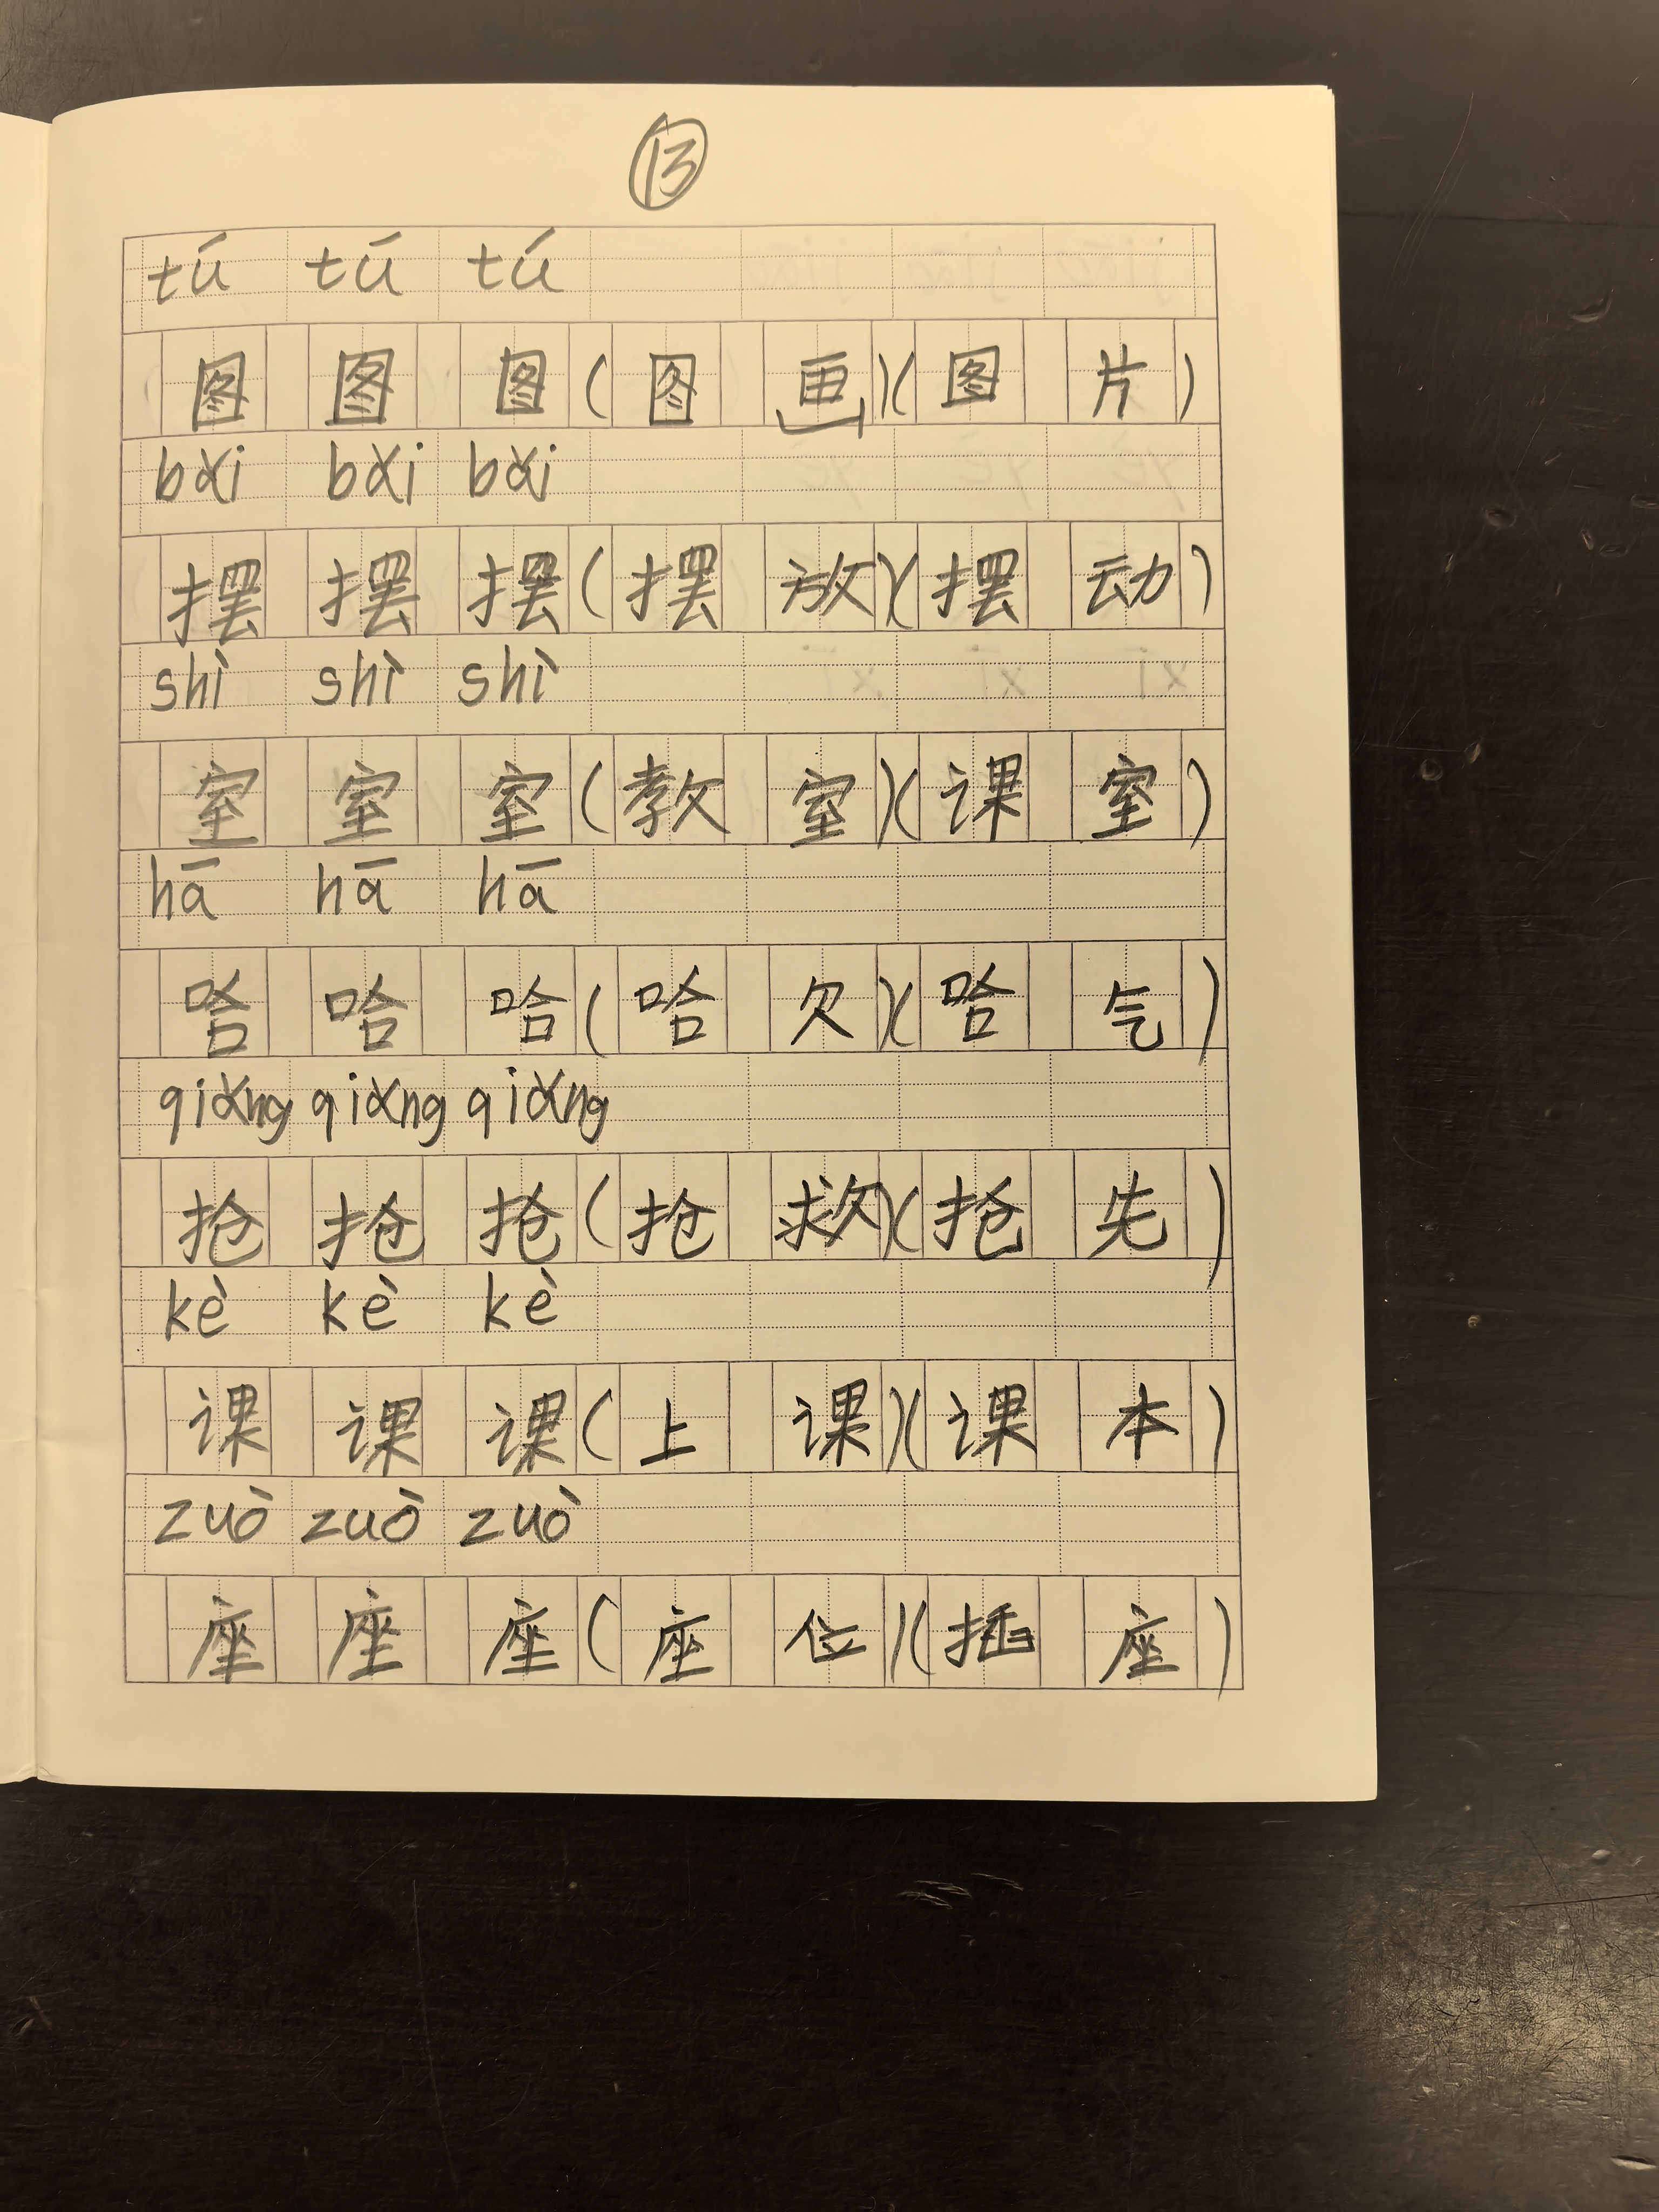 ⑬
tú tú tú
图 图 图 ( 图 画 ) ( 图 片 )
bǎi bǎi bǎi
摆 摆 摆 ( 摆 放 ) ( 摆 动 )
shì shì shì
室 室 室 ( 教 室 ) ( 课 室 )
hā hā hā
哈 哈 哈 ( 哈 欠 ) ( 哈 气 )
qiǎng qiǎng qiǎng
抢 抢 抢 ( 抢 救 ) ( 抢 先 )
kè kè kè
课 课 课 ( 上 课 ) ( 课 本 )
zuò zuò zuò
座 座 座 ( 座 位 ) ( 插 座 )